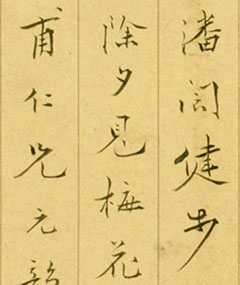 潘閬健步
除夕見梅花
甫仁兄元韻